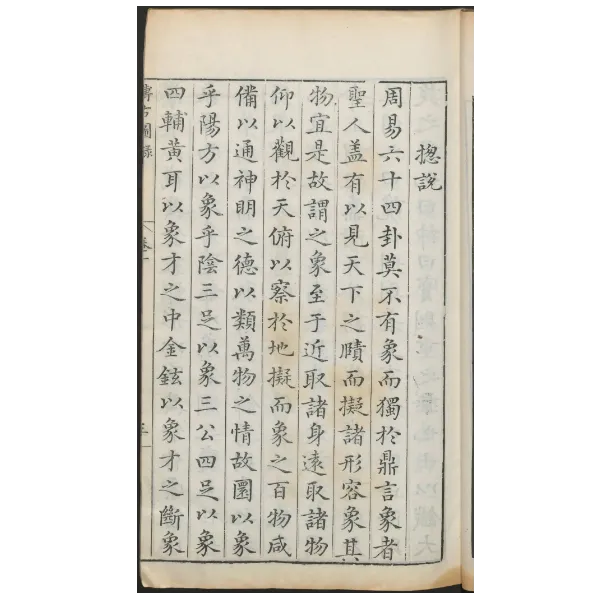 揔說
周易六十四卦莫不有象而獨於鼎言象者
聖人盖有以見天下之賾而擬諸形容象其
物宜是故謂之象至于近取諸身遠取諸物
仰以觀於天俯以察於地擬而象之百物咸
備以通神明之德以類萬物之情故圜以象
乎陽方以象乎陰三足以象三公四足以象
四輔黃耳以象才之中金鉉以象才之斷象
博古圖錄
卷一